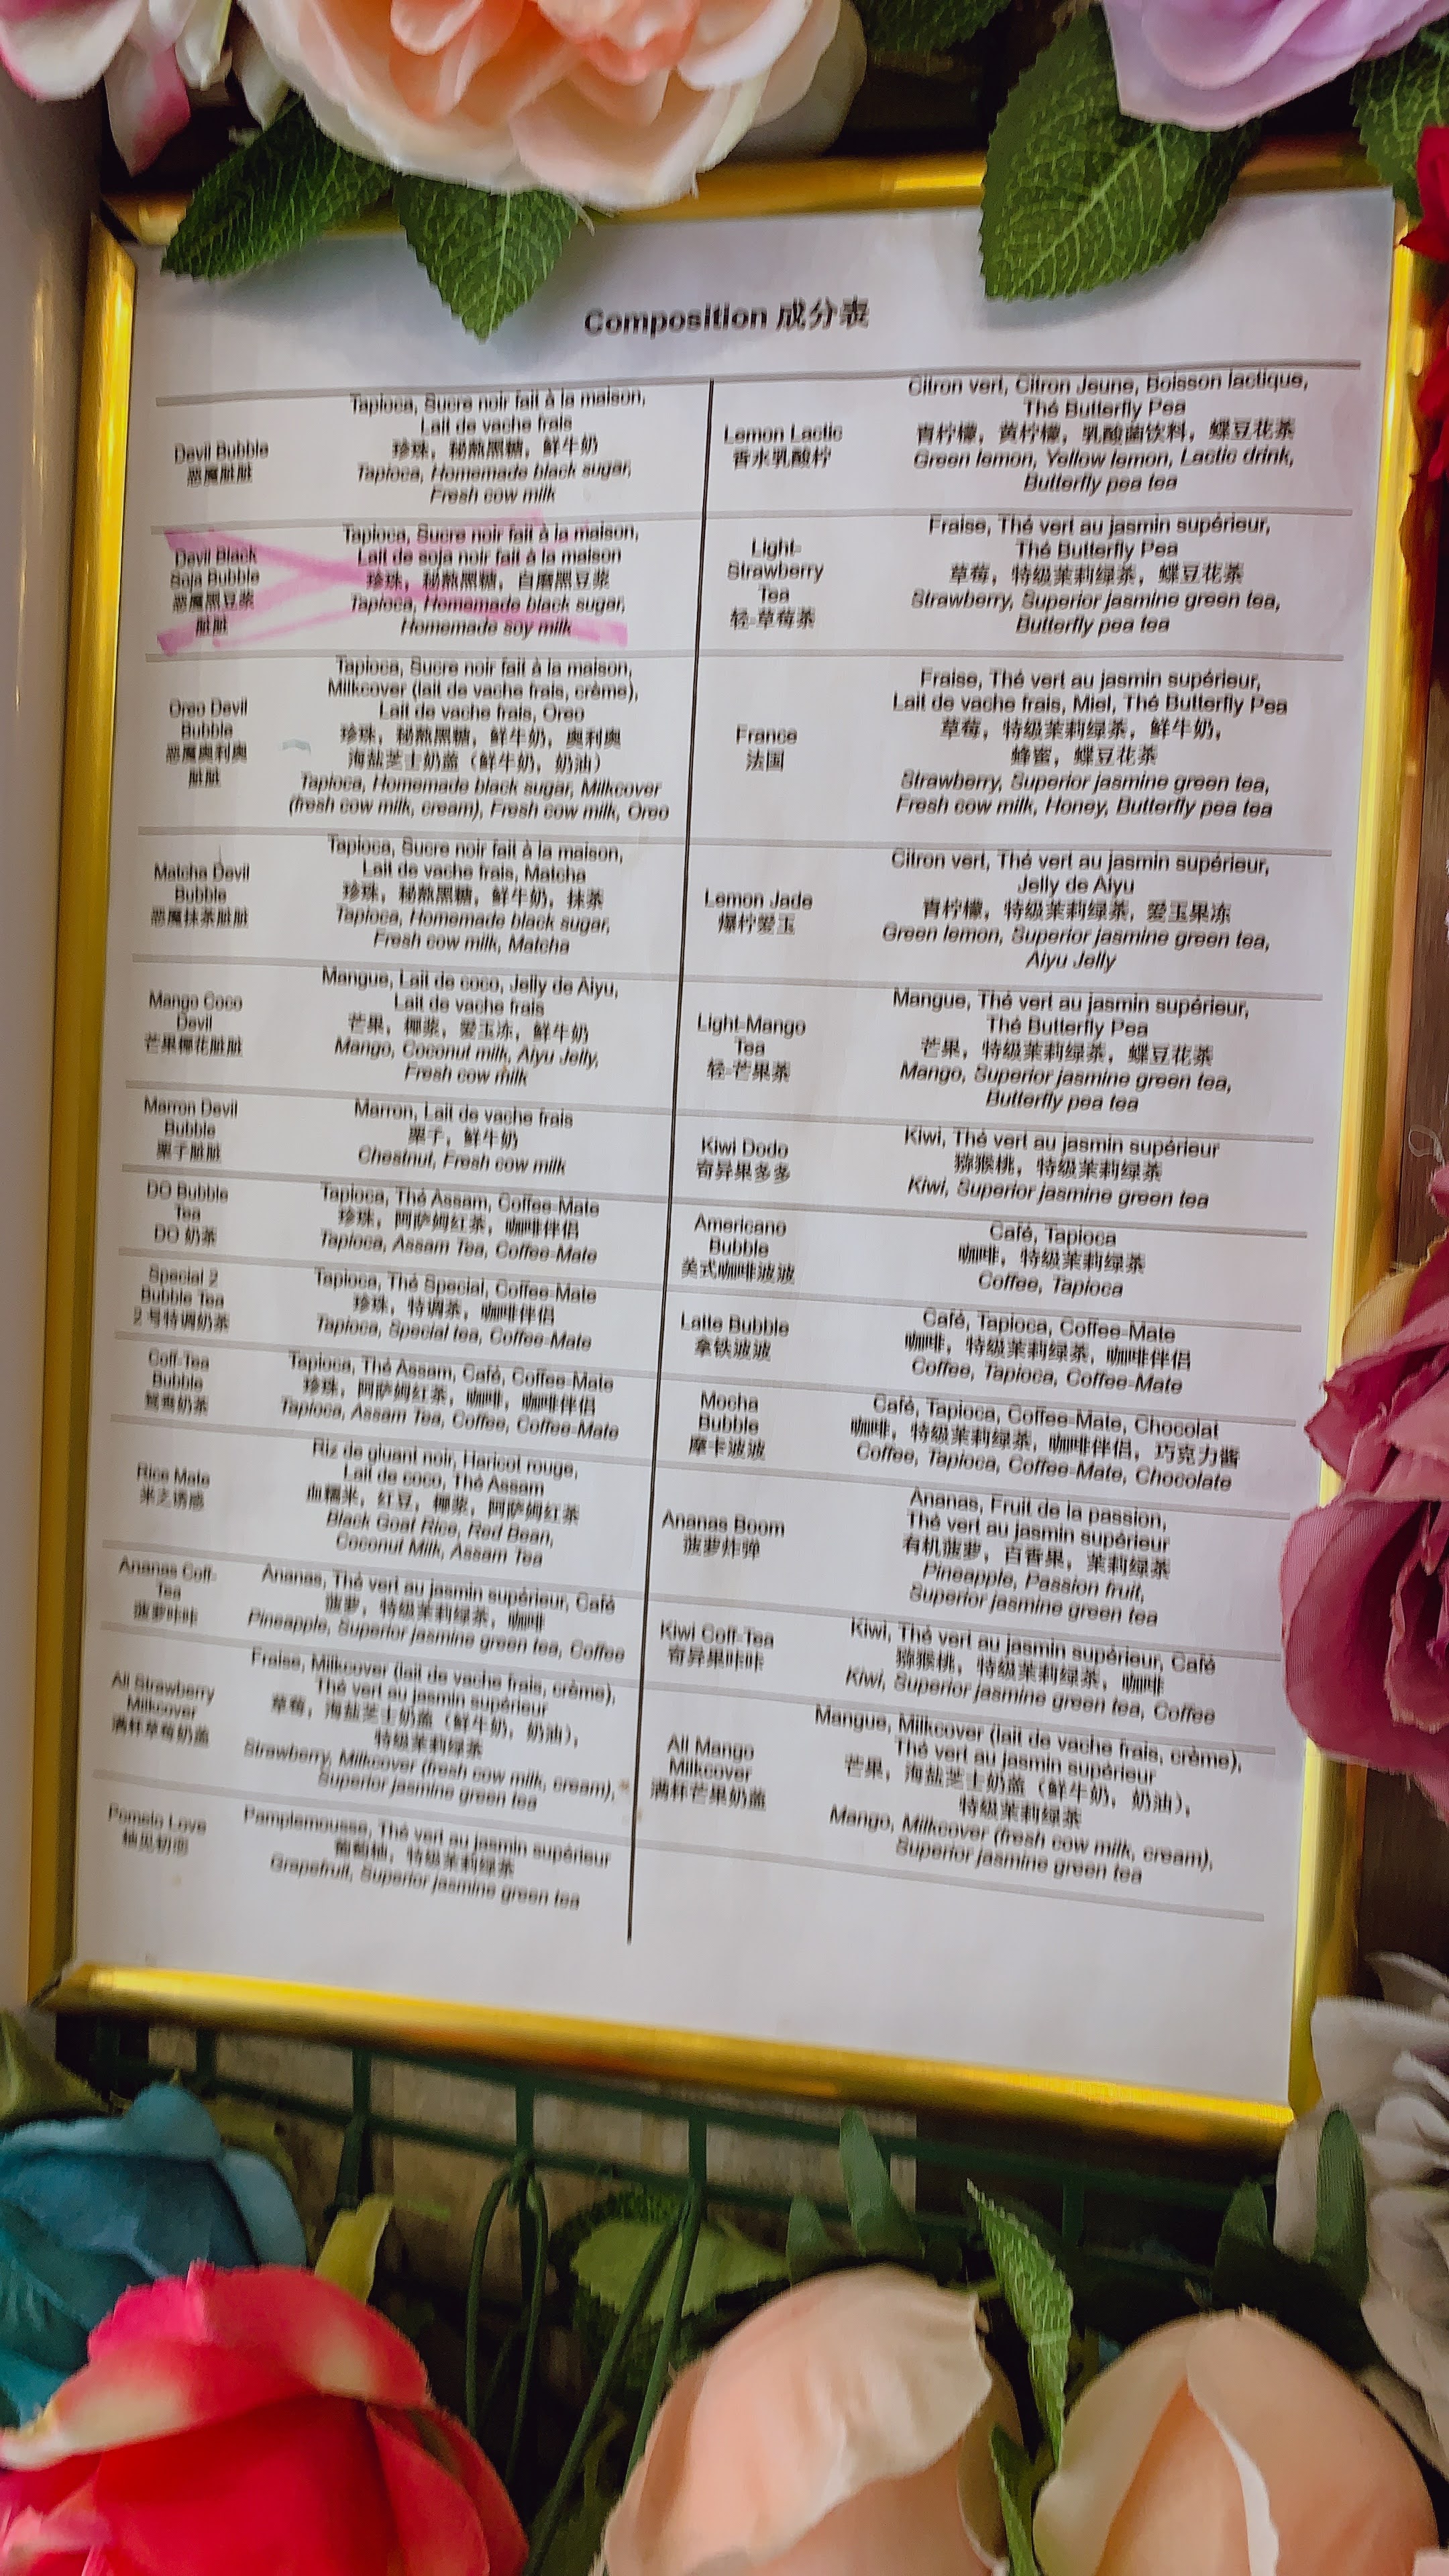 Composition 成分表
Devil Bubble
恶魔脏脏
Tapioca, Sucre noir fait à la maison,
Lait de vache frais
珍珠，秘熬黑糖，鲜牛奶
Tapioca, Homemade black sugar,
Fresh cow milk
Devil Black
Soja Bubble
恶魔黑豆浆
脏脏
Tapioca, Sucre noir fait à la maison,
Lait de soja noir fait à la maison
珍珠，秘熬黑糖，自磨黑豆浆
Tapioca, Homemade black sugar,
Homemade soy milk
Oreo Devil
Bubble
恶魔奥利奥
脏脏
Tapioca, Sucre noir fait à la maison,
Milkcover (lait de vache frais, crème),
Lait de vache frais, Oreo
珍珠，秘熬黑糖，鲜牛奶，奥利奥
海盐芝士奶盖（鲜牛奶，奶油）
Tapioca, Homemade black sugar, Milkcover
(fresh cow milk, cream), Fresh cow milk, Oreo
Matcha Devil
Bubble
恶魔抹茶脏脏
Tapioca, Sucre noir fait à la maison,
Lait de vache frais, Matcha
珍珠，秘熬黑糖，鲜牛奶，抹茶
Tapioca, Homemade black sugar,
Fresh cow milk, Matcha
Mango Coco
Devil
芒果椰花脏脏
Mangue, Lait de coco, Jelly de Aiyu,
Lait de vache frais
芒果，椰浆，爱玉冻，鲜牛奶
Mango, Coconut milk, Aiyu Jelly,
Fresh cow milk
Marron Devil
Bubble
栗子脏脏
Marron, Lait de vache frais
栗子，鲜牛奶
Chestnut, Fresh cow milk
DO Bubble
Tea
DO 奶茶
Tapioca, Thé Assam, Coffee-Mate
珍珠，阿萨姆红茶，咖啡伴侣
Tapioca, Assam Tea, Coffee-Mate
Special 2
Bubble Tea
2 号特调奶茶
Tapioca, Thé Special, Coffee-Mate
珍珠，特调茶，咖啡伴侣
Tapioca, Special tea, Coffee-Mate
Coff-Tea
Bubble
鸳鸯奶茶
Tapioca, Thé Assam, Café, Coffee-Mate
珍珠，阿萨姆红茶，咖啡，咖啡伴侣
Tapioca, Assam Tea, Coffee, Coffee-Mate
Rice Mate
米之诱惑
Riz de gluant noir, Haricot rouge,
Lait de coco, Thé Assam
血糯米，红豆，椰浆，阿萨姆红茶
Black Goat Rice, Red Bean,
Coconut Milk, Assam Tea
Ananas Coff-
Tea
菠萝咔咔
Ananas, Thé vert au jasmin supérieur, Café
菠萝，特级茉莉绿茶，咖啡
Pineapple, Superior jasmine green tea, Coffee
All Strawberry
Milkcover
满杯草莓奶盖
Fraise, Milkcover (lait de vache frais, crème),
Thé vert au jasmin supérieur
草莓，海盐芝士奶盖（鲜牛奶，奶油），
特级茉莉绿茶
Strawberry, Milkcover (fresh cow milk, cream),
Superior jasmine green tea
Pomelo Love
Pamplemousse, Thé vert au jasmin supérieur
葡萄柚，特级茉莉绿茶
Grapefruit, Superior jasmine green tea
Lemon Lactic
香水乳酸柠
Citron vert, Citron Jeune, Boisson lactique,
Thé Butterfly Pea
青柠檬，黄柠檬，乳酸菌饮料，蝶豆花茶
Green lemon, Yellow lemon, Lactic drink,
Butterfly pea tea
Light-
Strawberry
Tea
轻-草莓茶
Fraise, Thé vert au jasmin supérieur,
Thé Butterfly Pea
草莓，特级茉莉绿茶，蝶豆花茶
Strawberry, Superior jasmine green tea,
Butterfly pea tea
France
法国
Fraise, Thé vert au jasmin supérieur,
Lait de vache frais, Miel, Thé Butterfly Pea
草莓，特级茉莉绿茶，鲜牛奶，
蜂蜜，蝶豆花茶
Strawberry, Superior jasmine green tea,
Fresh cow milk, Honey, Butterfly pea tea
Lemon Jade
爆柠爱玉
Citron vert, Thé vert au jasmin supérieur,
Jelly de Aiyu
青柠檬，特级茉莉绿茶，爱玉果冻
Green lemon, Superior jasmine green tea,
Aiyu Jelly
Light-Mango
Tea
轻-芒果茶
Mangue, Thé vert au jasmin supérieur,
Thé Butterfly Pea
芒果，特级茉莉绿茶，蝶豆花茶
Mango, Superior jasmine green tea,
Butterfly pea tea
Kiwi Dodo
奇异果多多
Kiwi, Thé vert au jasmin supérieur
猕猴桃，特级茉莉绿茶
Kiwi, Superior jasmine green tea
Americano
Bubble
美式咖啡波波
Café, Tapioca
咖啡，特级茉莉绿茶
Coffee, Tapioca
Latte Bubble
拿铁波波
Café, Tapioca, Coffee-Mate
咖啡，特级茉莉绿茶，咖啡伴侣
Coffee, Tapioca, Coffee-Mate
Mocha
Bubble
摩卡波波
Café, Tapioca, Coffee-Mate, Chocolat
咖啡，特级茉莉绿茶，咖啡伴侣，巧克力酱
Coffee, Tapioca, Coffee-Mate, Chocolate
Ananas Boom
菠萝炸弹
Ananas, Fruit de la passion,
Thé vert au jasmin supérieur
有机菠萝，百香果，茉莉绿茶
Pineapple, Passion fruit,
Superior jasmine green tea
Kiwi Coff-Tea
奇异果咔咔
Kiwi, Thé vert au jasmin supérieur, Café
猕猴桃，特级茉莉绿茶，咖啡
Kiwi, Superior jasmine green tea, Coffee
All Mango
Milkcover
满杯芒果奶盖
Mangue, Milkcover (lait de vache frais, crème),
Thé vert au jasmin supérieur
芒果，海盐芝士奶盖（鲜牛奶，奶油），
特级茉莉绿茶
Mango, Milkcover (fresh cow milk, cream),
Superior jasmine green tea